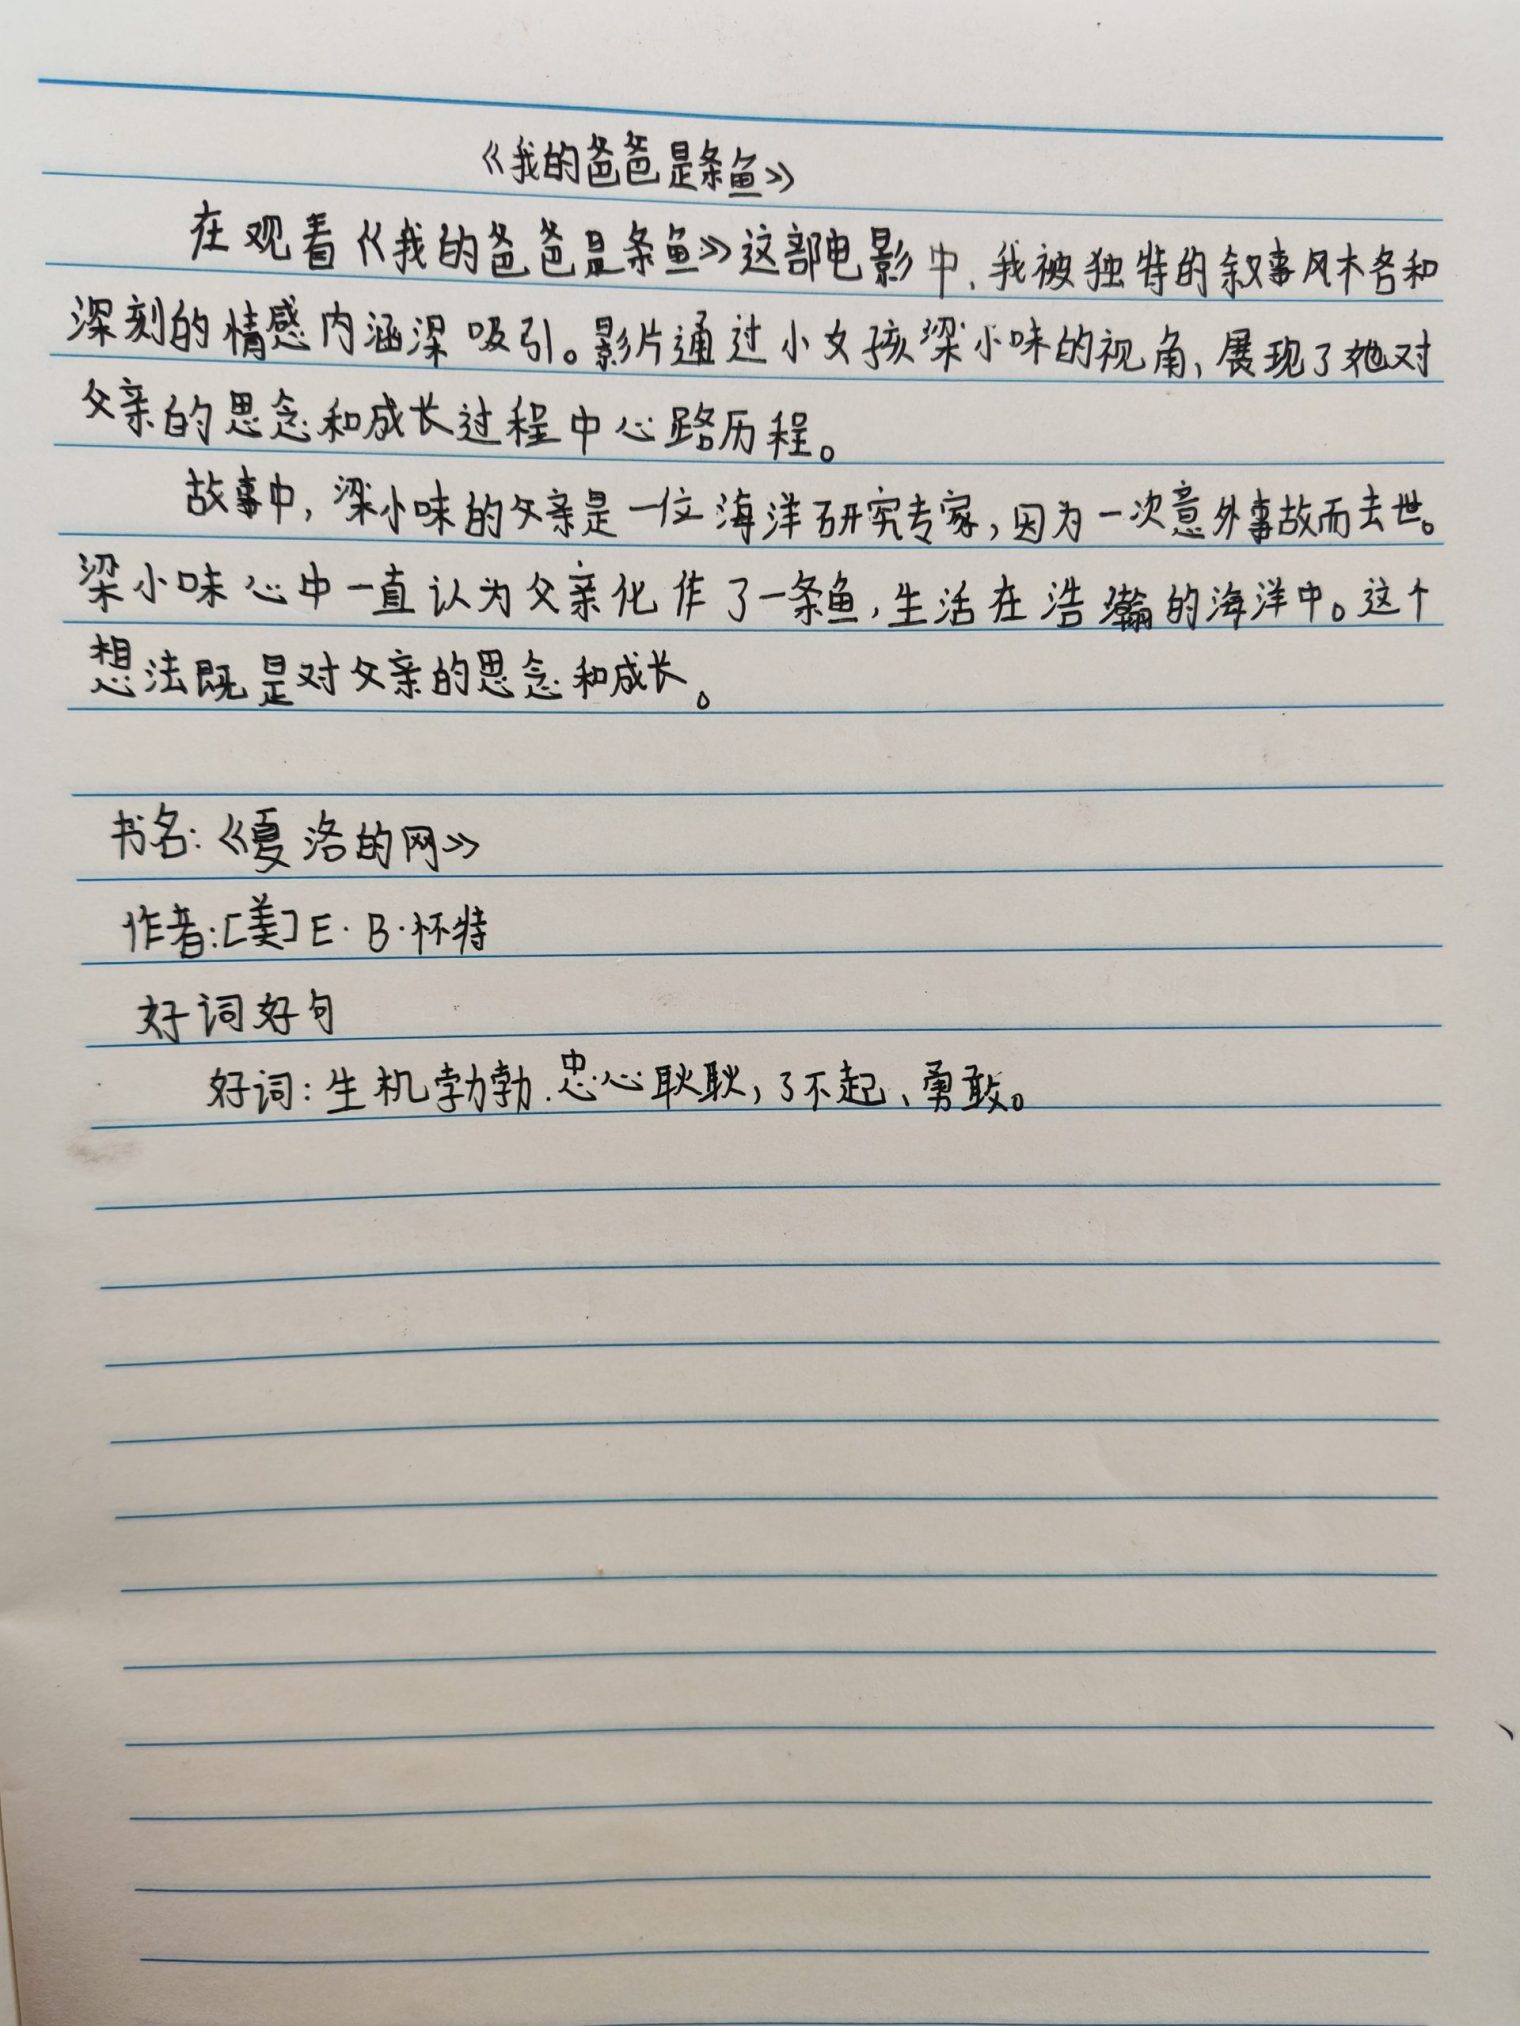 《我的爸爸是条鱼》
在观看《我的爸爸是条鱼》这部电影中、我被独特的叙事风格和
深刻的情感内涵深吸引。影片通过小女孩梁小味的视角,展现了她对
父亲的思念和成长过程中心路历程。
故事中,梁小味的父亲是一位海洋研究专家,因为一次意外事故而去世。
梁小味心中一直认为父亲化作了一条鱼,生活在浩瀚的海洋中。这个
想法既是对父亲的思念和成长。
书名:《夏洛的网》
作者:[美]E·B·怀特
好词好句
好词:生机勃勃、忠心耿耿,了不起、勇敢。